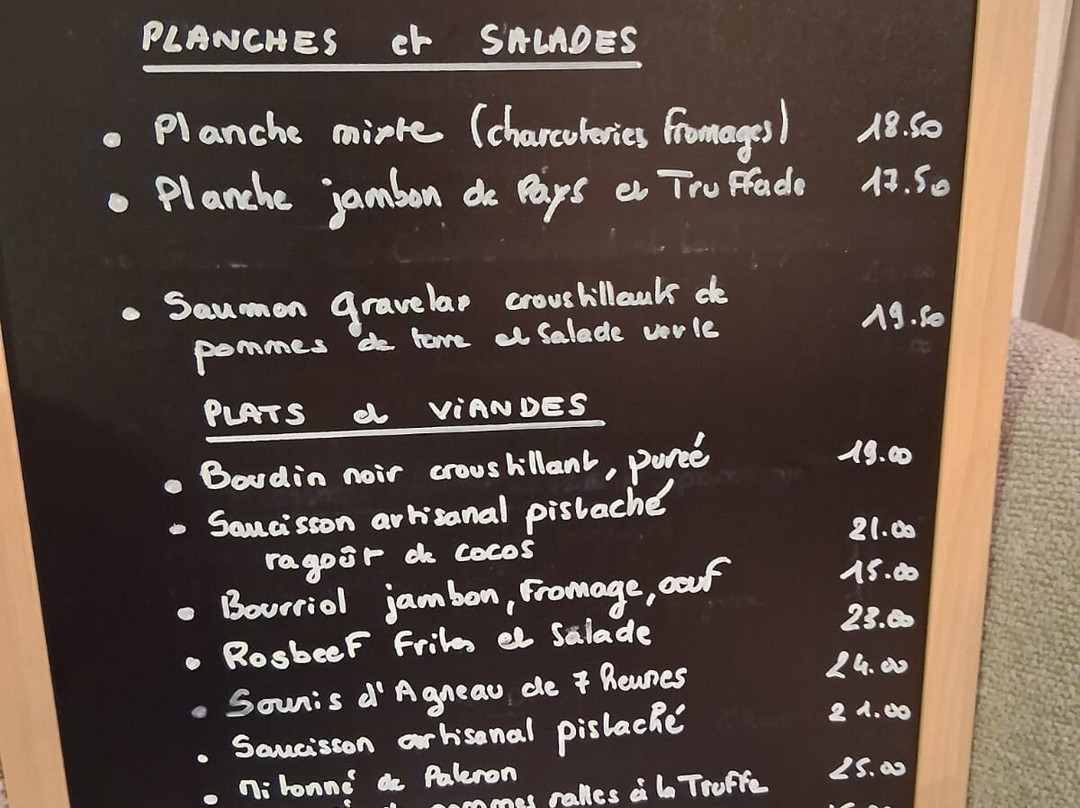 PLANCHES et SALADES
• Planche mixte (charcuteries fromages) 18.50
• Planche jambon de Pays et Truffade 17.50
• Saumon gravelax croustillants de
pommes de terre et Salade verte 19.50
PLATS et VIANDES
• Boudin noir croustillant, pureé 19.00
• Saucisson artisanal pistaché
ragoût de cocos 21.00
• Bourriol jambon, fromage, oeuf 15.00
• Rosbeef Frites et Salade 23.00
• Souris d'Agneau de 7 heures 24.00
• Saucisson artisanal pistaché 21.00
• Mitonné de Paleron 25.00
pommes à la Truffe